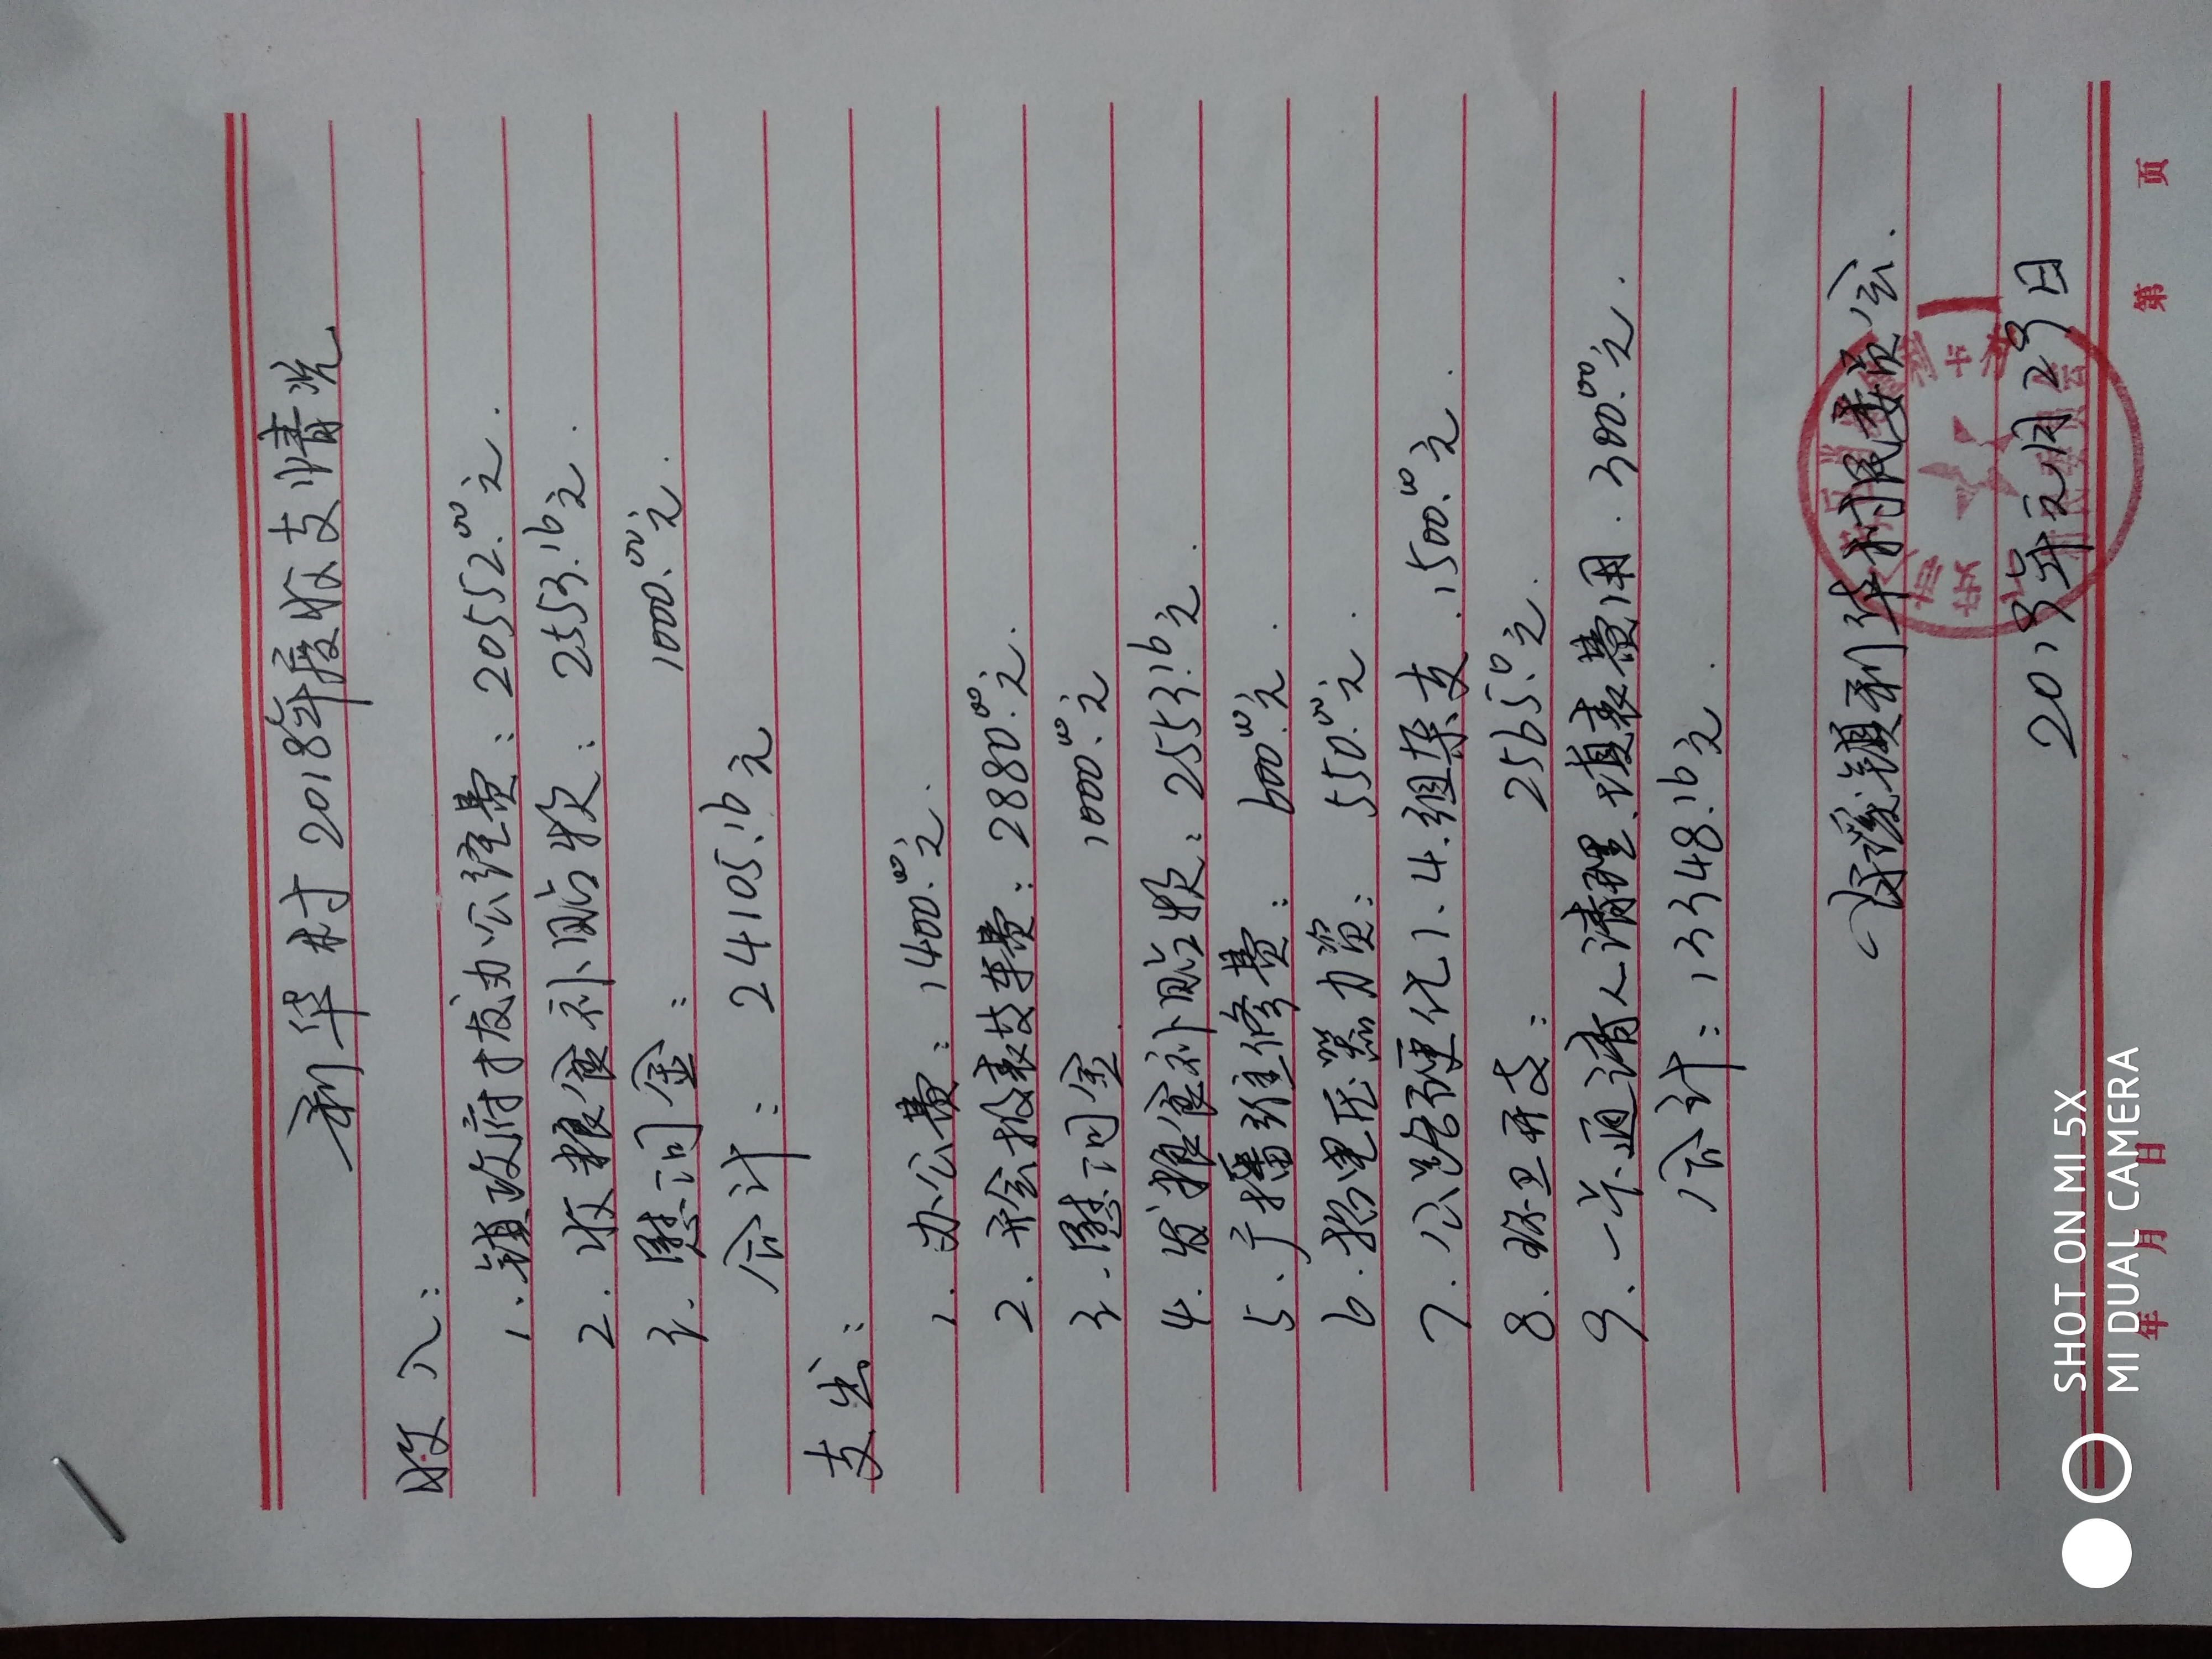 利华村2018年度收支情况
收入：
1.镇政府拨办公经费：20552.00元.
2.收粮食补贴款：2553.16元.
3.慰问金：1000.00元.
合计：24105.16元
支出：
1.办公费：1400.00元.
2.开会报表校车费：2880.00元.
3.慰问金 1000.00元
4.发粮食补贴款：2553.16元.
5、广播维修费：600.00元.
6.抬变压器力资：550.00元.
7.公路硬化1、4.组杂支.1500.00元.
8.环卫开支：2565.00元.
9、一卡通请人清理、填表费用.300.00元.
合计：13348.16元.
镇利华村民委员会.
2019年元月29日
第 页
年 月 日
SHOT ON MI 5X
MI DUAL CAMERA